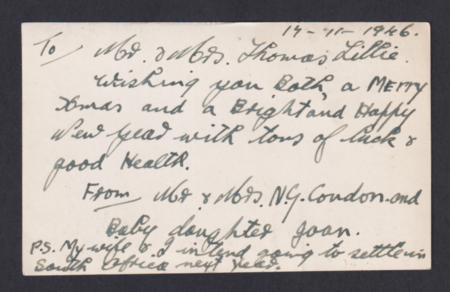 17-11-1946.
To Mr. & Mrs. Thomas Lillie.
Wishing you Both a Merry
Xmas and a Bright and Happy
New year with tons of luck &
good Health.
From Mr & Mrs. N.G. Condon and
Baby daughter Joan.
P.S. My wife & I intend going to settle in
South Africa next year.